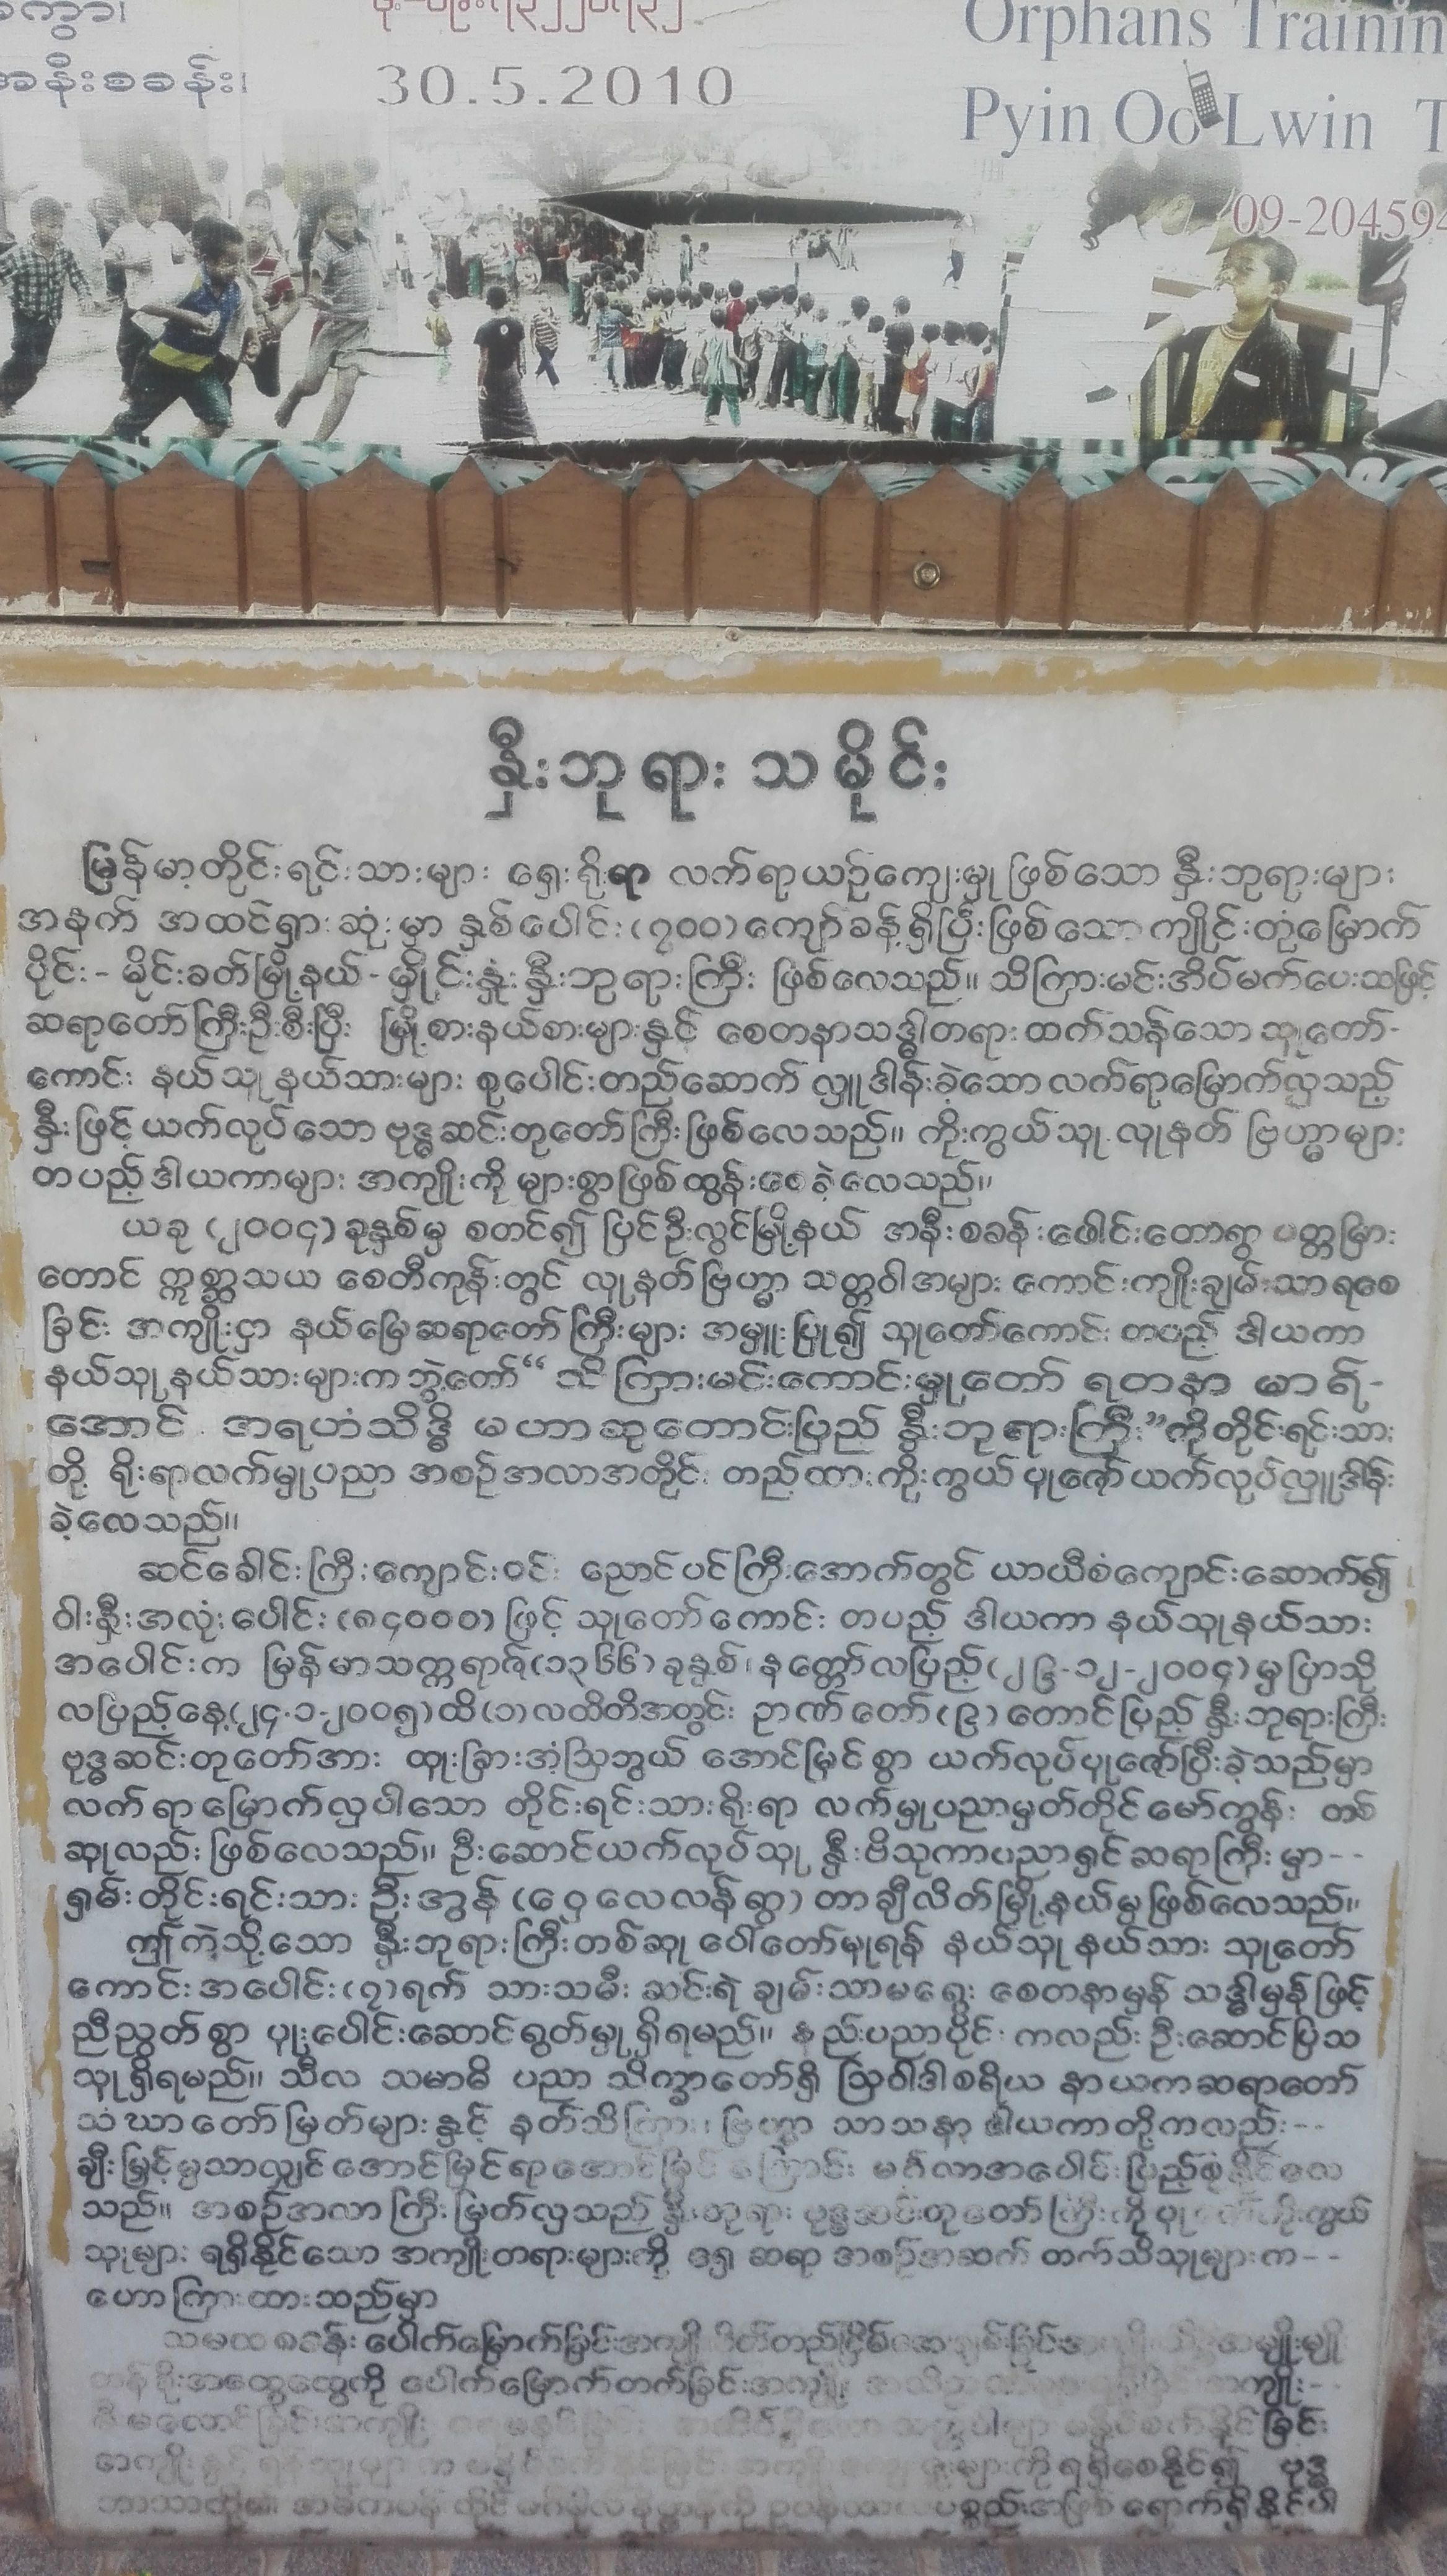 အနီးစခန်း၊
30.5.2010
Orphans
Pyin Oo Lwin
နှီးဘုရား သမိုင်း
မြန်မာ့တိုင်းရင်းသားများ ရှေးရိုးရာ လက်ရာယဉ်ကျေးမှု ဖြစ်သော နှီးဘုရားများ
အနက် အထင်ရှားဆုံးမှာ နှစ်ပေါင်း(၇၀၀)ကျော်ခန့်ရှိပြီးဖြစ်သော ကျိုင်းတုံမြောက်
ပိုင်း-မိုင်းခတ်မြို့နယ်-မှိုင်းနှုံးနှီးဘုရားကြီး ဖြစ်လေသည်။ သိကြားမင်းအိပ်မက်ပေးသဖြင့်
ဆရာတော်ကြီးဦးစီးပြီး မြို့စားနယ်စားများနှင့် စေတနာသဒ္ဓါတရားထက်သန်သော သူတော်-
ကောင်း နယ်သူနယ်သားများ စုပေါင်းတည်ဆောက် လှူဒါန်းခဲ့သော လက်ရာမြောက်လှသည့်
နှီးဖြင့် ယက်လုပ်သော ဗုဒ္ဓဆင်းတုတော်ကြီးဖြစ်လေသည်။ ကိုးကွယ်သူ လူနတ် ဗြဟ္မာများ
တပည့်ဒါယကာများ အကျိုးကို များစွာဖြစ်ထွန်းစေခဲ့လေသည်။
ယခု (၂၀၀၄)ခုနှစ်မှ စတင်၍ ပြင်ဦးလွင်မြို့နယ် အနီးစခန်းဖေါင်းတောရွာ ပတ္တမြား
တောင် ဣစ္ဆာသယ စေတီကုန်းတွင် လူနတ်ဗြဟ္မာ သတ္တဝါအများ ကောင်းကျိုးချမ်းသာရစေ
ခြင်း အကျိုးငှာ နယ်မြေဆရာတော်ကြီးများ အမှူးပြု၍ သူတော်ကောင်း တပည့် ဒါယကာ
နယ်သူနယ်သားများက ဘွဲ့တော်“ သိကြားမင်းကောင်းမှုတော် ရတနာ မာရ်-
အောင် အရဟံသိဒ္ဓိ မဟာဆုတောင်းပြည် နှီးဘုရားကြီး”ကိုတိုင်းရင်းသား
တို့ ရိုးရာလက်မှုပညာ အစဉ်အလာအတိုင်း တည်ထားကိုးကွယ် ပူဇော်ယက်လုပ်လှူဒါန်း
ခဲ့လေသည်။
ဆင်ခေါင်းကြီးကျောင်းဝင်း ညောင်ပင်ကြီးအောက်တွင် ယာယီစံကျောင်းဆောက်၍
ဝါးနှီးအလုံးပေါင်း(၈၄၀၀၀)ဖြင့် သူတော်ကောင်း တပည့် ဒါယကာ နယ်သူနယ်သား
အပေါင်းက မြန်မာသက္ကရာဇ်(၁၃၆၆)ခုနှစ်၊နတ်တော်လပြည့်(၂၆-၁၂-၂၀၀၄)မှပြာသို
လပြည့်နေ့(၂၄-၁-၂၀၀၅)ထိ(၁)လထိတိအတွင်း ဉာဏ်တော်(၉)တောင်ပြည့် နှီးဘုရားကြီး
ဗုဒ္ဓဆင်းတုတော်အား ထူးခြားအံ့ဩဘွယ် အောင်မြင်စွာ ယက်လုပ်ပူဇော်ပြီးခဲ့သည်မှာ
လက်ရာမြောက်လှပါသော တိုင်းရင်းသားရိုးရာ လက်မှုပညာမှတ်တိုင်မော်ကွန်း တစ်
ဆူလည်း ဖြစ်လေသည်။ ဦးဆောင်ယက်လုပ်သူ နှီးဗိသုကာပညာရှင်ဆရာကြီးမှာ--
ရှမ်းတိုင်းရင်းသား ဦးအွန် (ဝှေလေလန်ရွာ)တာချီလိတ်မြို့နယ်မှဖြစ်လေသည်။
ဤကဲ့သို့သော နှီးဘုရားကြီးတစ်ဆူ ပေါ်တော်မူရန် နယ်သူနယ်သား သူတော်
ကောင်းအပေါင်း(၇)ရက် သားသမီး ဆင်းရဲ ချမ်းသာမရွေး စေတနာမှန် သဒ္ဓါမှန်ဖြင့်
ညီညွတ်စွာ ပူးပေါင်းဆောင်ရွတ်မှုရှိရမည်။ နည်းပညာပိုင်း ကလည်း ဦးဆောင်ပြသ
သူရှိရမည်။ သီလ သမာဓိ ပညာ သိက္ခာတော်ရှိ ဩဝါဒါစရိယ နာယကဆရာတော်
သံဃာတော်မြတ်များနှင့် နတ်သိကြား၊ဗြဟ္မာ သာသနာ့ ဒါယကာတို့ကလည်း--
ချီးမြှင့်မှသာလျှင်အောင်မြင်ရာအောင်မြင်ကြောင်း မင်္ဂလာအပေါင်းပြည့်စုံနိုင်လေ
သည်။ အစဉ်အလာကြီးမြတ်လှသည့် နှီးဘုရား ဗုဒ္ဓဆင်းတုတော်ကြီးကို ကိုးကွယ်
သူများ ရရှိနိုင်သော အကျိုးတရားများကို ဆရာ အစဉ်အဆက် တတ်သိသူများက--
ဟောကြားထားသည်မှာ
ပေါက်မြောက်ခြင်းအကျိုး
ပေါက်မြောက်တက်ခြင်းအကျိုး အကျိုး--
ခြင်း
များကိုရရှိစေနိုင်၍ ဗုဒ္ဓ
ရောက်ရှိနိုင်ပါ